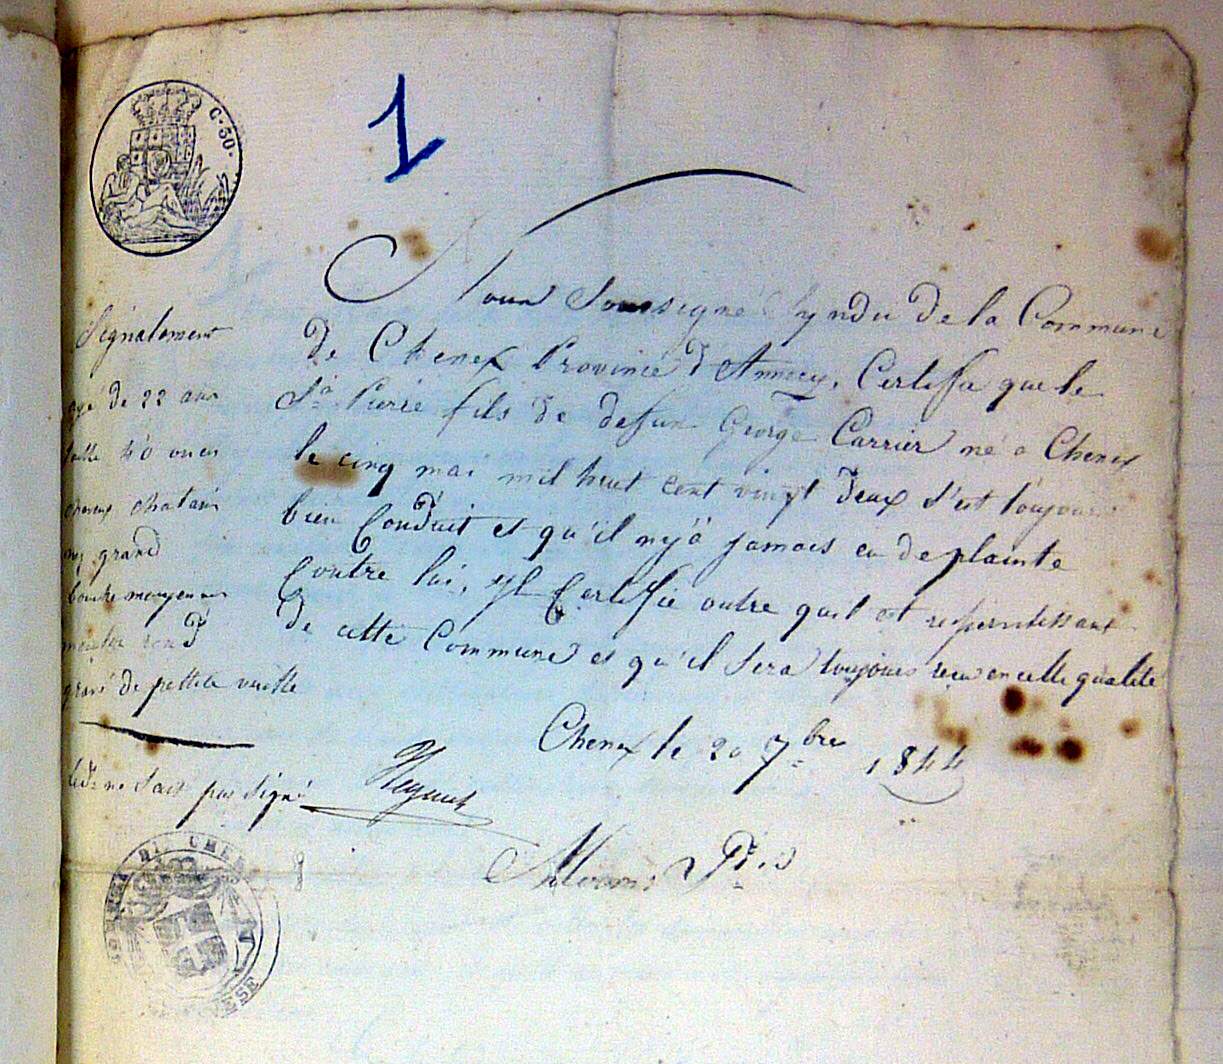 C. 50.
1
Nous Soussigné Syndic de la Commune
de Chenex Province d'Annecy, Certifie que le
Sr. Pierre fils de defun George Carrier né a Chenex
le cinq mai mil huit cent vingt deux s'est toujours
bien Conduit et qu'il n'y a jamais eu de plainte
Contre lui, yl Certifie outre quil est
de cette Commune et qu'il sera toujours recu en cette qualité
Chenex le 20 7bre 1844
Signalement
age de 22 ans
taille 40 onces
cheveux chatain
nez grand
bouche moyenne
menton rond
gravé de pettite verolle
ne sait pas signé
CHENE
ESE